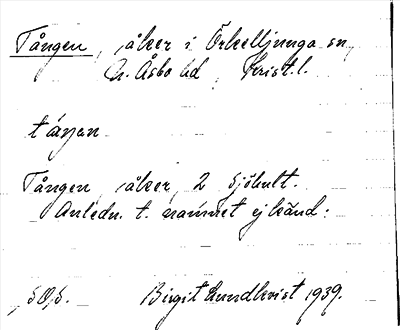 Tången, åker i Örkelljunga sn,
N. Åsbo hd, Krist.l.
táŋən
Tången, åker, 2 Sjöhult.
Anledn. t. namnet ej känd.
Birgit Lundkvist 1939.